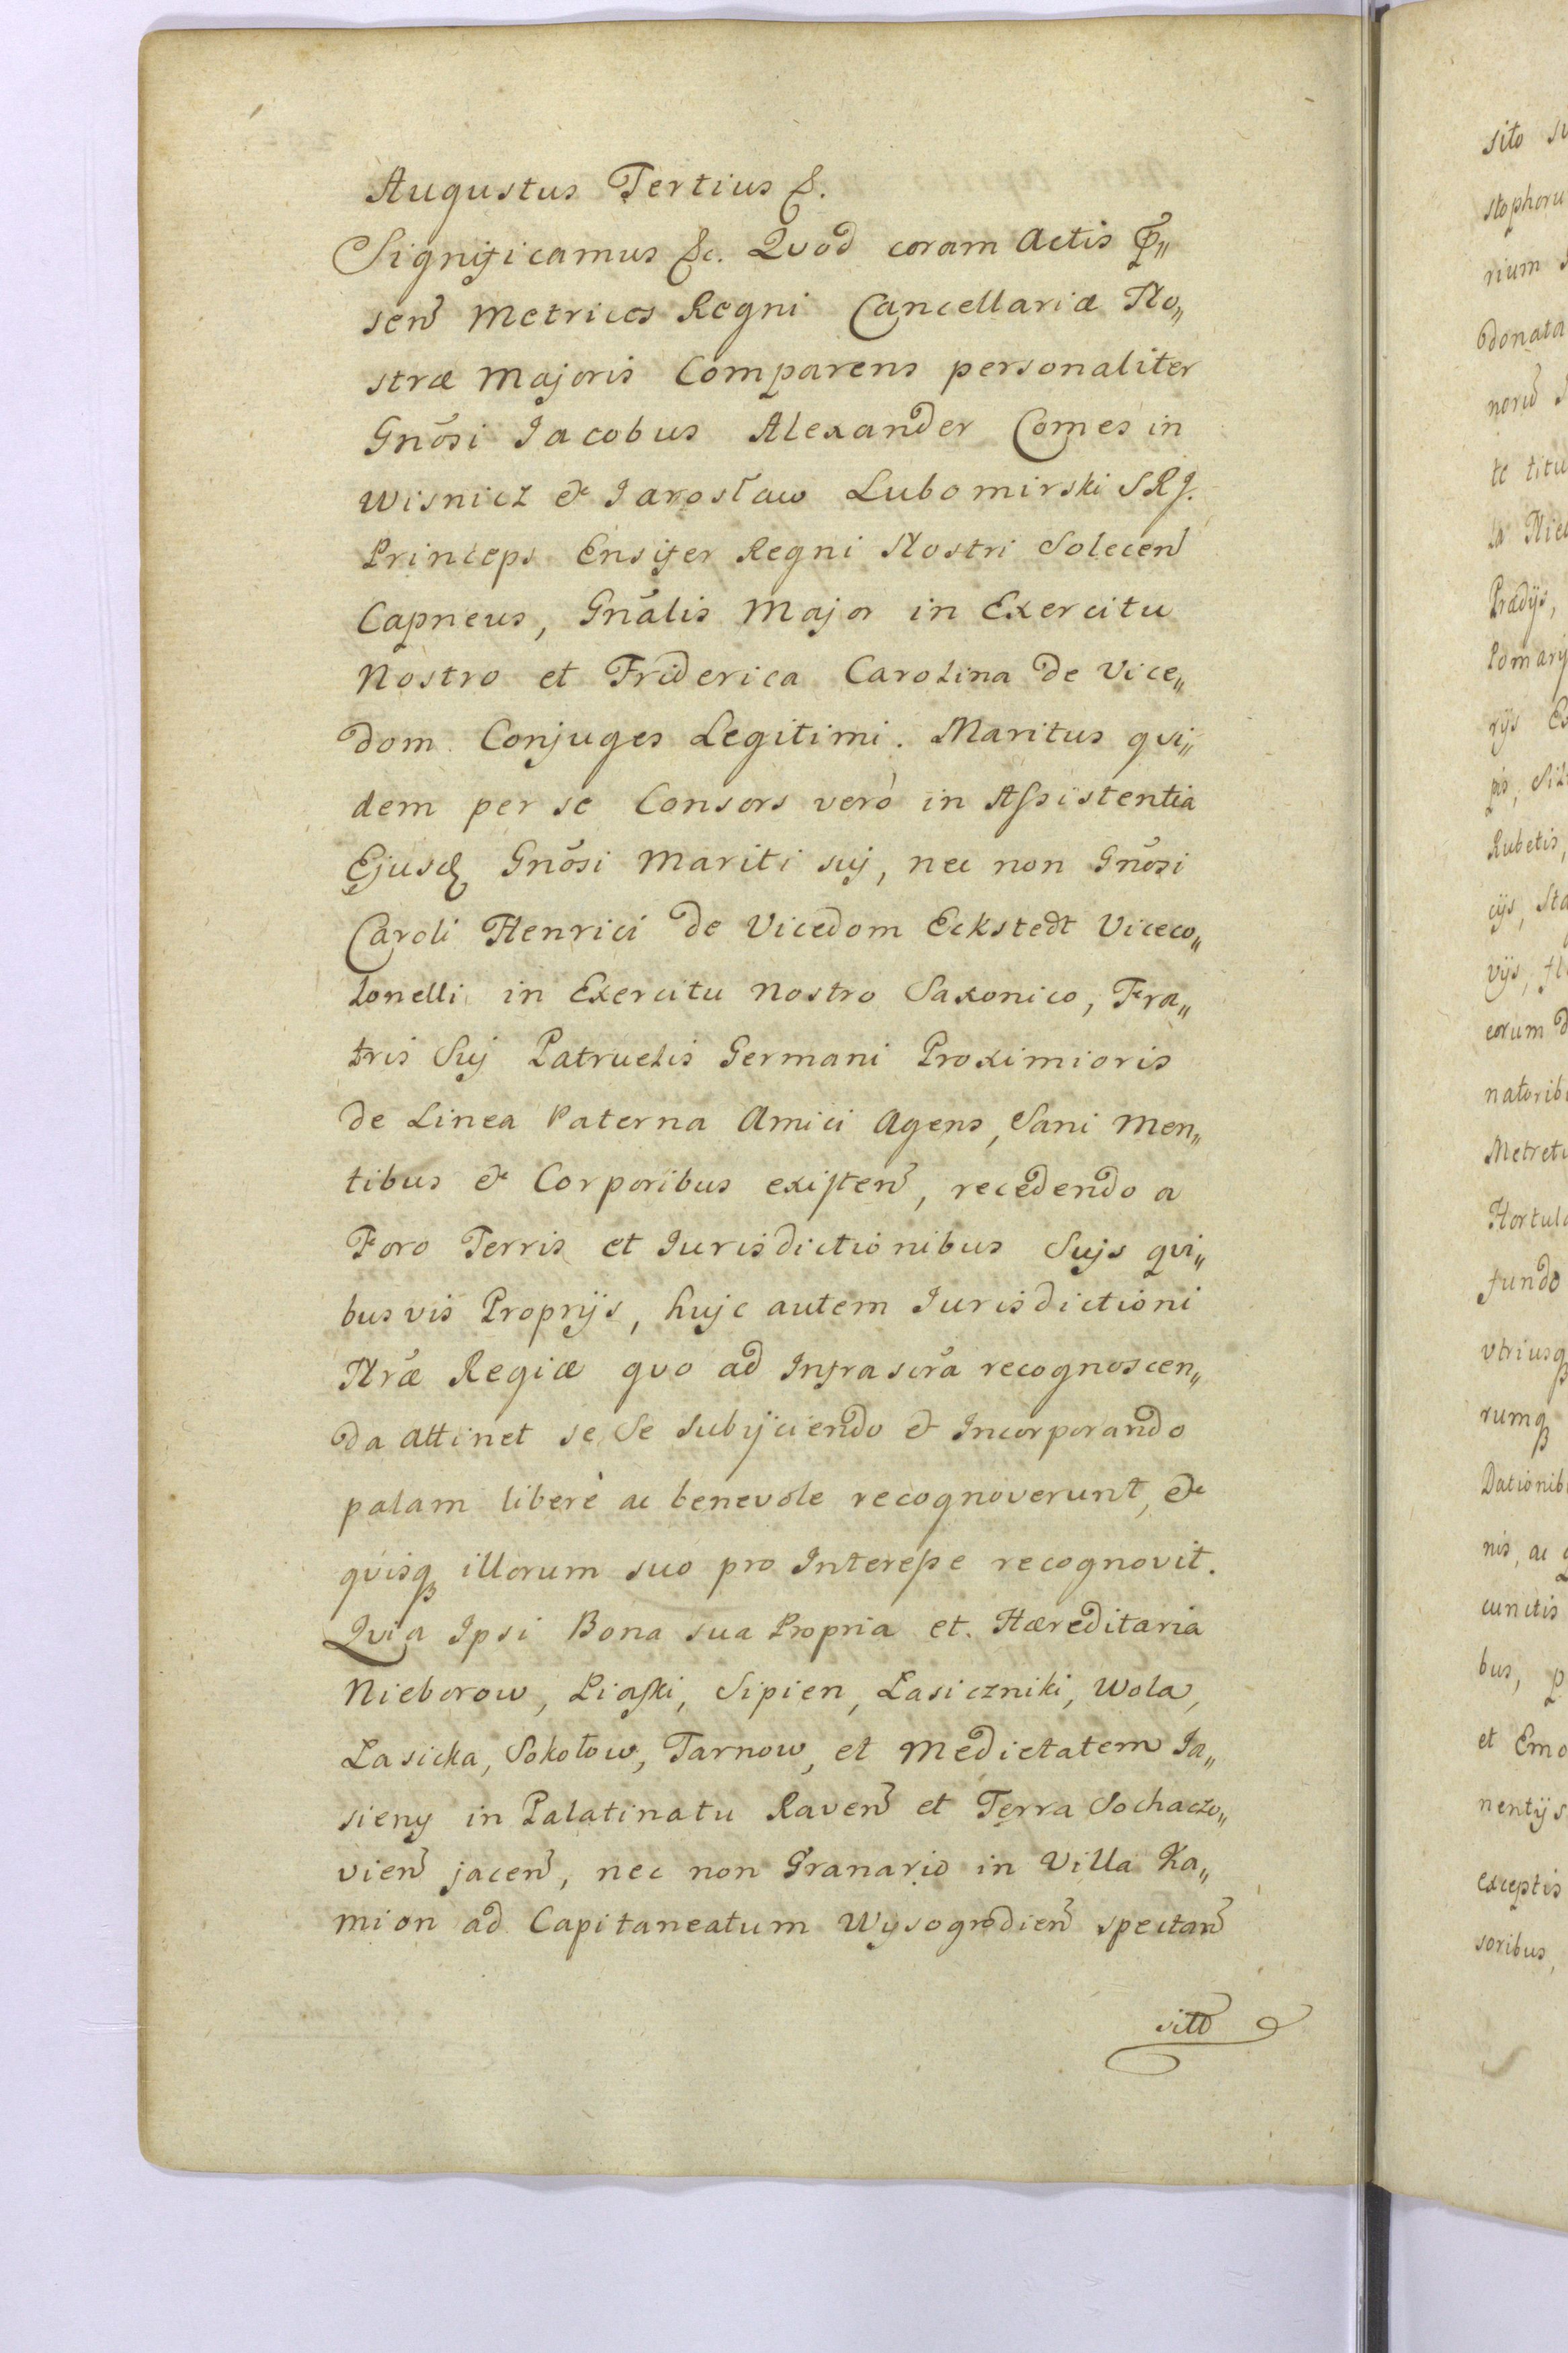 Augustus Tertius &.
Significamus &c. Quod coram Actis P„
sen̄ Metrices Regni Cancellariæ No„
stræ Majoris Comparens personaliter
Gnōsi Jacobus Alexander Comes in
Wisnicz & Jarosław Lubomirski SRJ.
Princeps Ensifer Regni Nostri Solecen̄
Capneus, Gnālis Major in Exercitu
Nostro et Friderica Carolina de Vice„
dom. Conjuges Legitimi. Maritus qvi„
dem per se Consors verò in Assistentia
Ejusdq Gnōsi Mariti suj, nec non Gnōsi
Caroli Henrici de Vicedom Eckstedt Viceco„
lonelli in Exercitu Nostro Saxonico, Fra„
tris Suj Patruelis Germani Proximioris
de Linea Paterna Amici Agens, Sani Men„
tibus & Corporibus existen̄, recedendo a
Foro Terris et Jurisdictionibus Sujs qvi„
busvis Proprijs, hujc autem Jurisdictioni
Nrǣ Regiæ qvo ad Infrascrā recognoscen„
da attinet se Se Subijciendo & Incorporando
palam liberè ac benevole recognoverunt, &
qvisq illorum suo pro Interesse recognovit.
Qvia Ipsi Bona sua Propria et. Hæreditaria
Nieborow, Piaski, Sipien, Łasiczniki, Wola,
Łasicka, Sokołow, Tarnow, et Medietatem Ja„
sieny in Palatinatu Raven̄ et Terra Sochaczo„
vien̄ jacen̄, nec non Granario in Villa Ka„
mion ad Capitaneatum Wysogrodien̄ spectan̄
sito
sito
stophoru
rium
donata
te titu
Prædijs,
Pomary
rijs
pis,
Rubetis,
cijs, Sta
vijs,
eorum
natorib
Metret
Hortul
fundo
vtriusq
rumq
Dationib
nis, ac
cunctis
bus, p
et Emo
nentijs
exceptis
soribus,